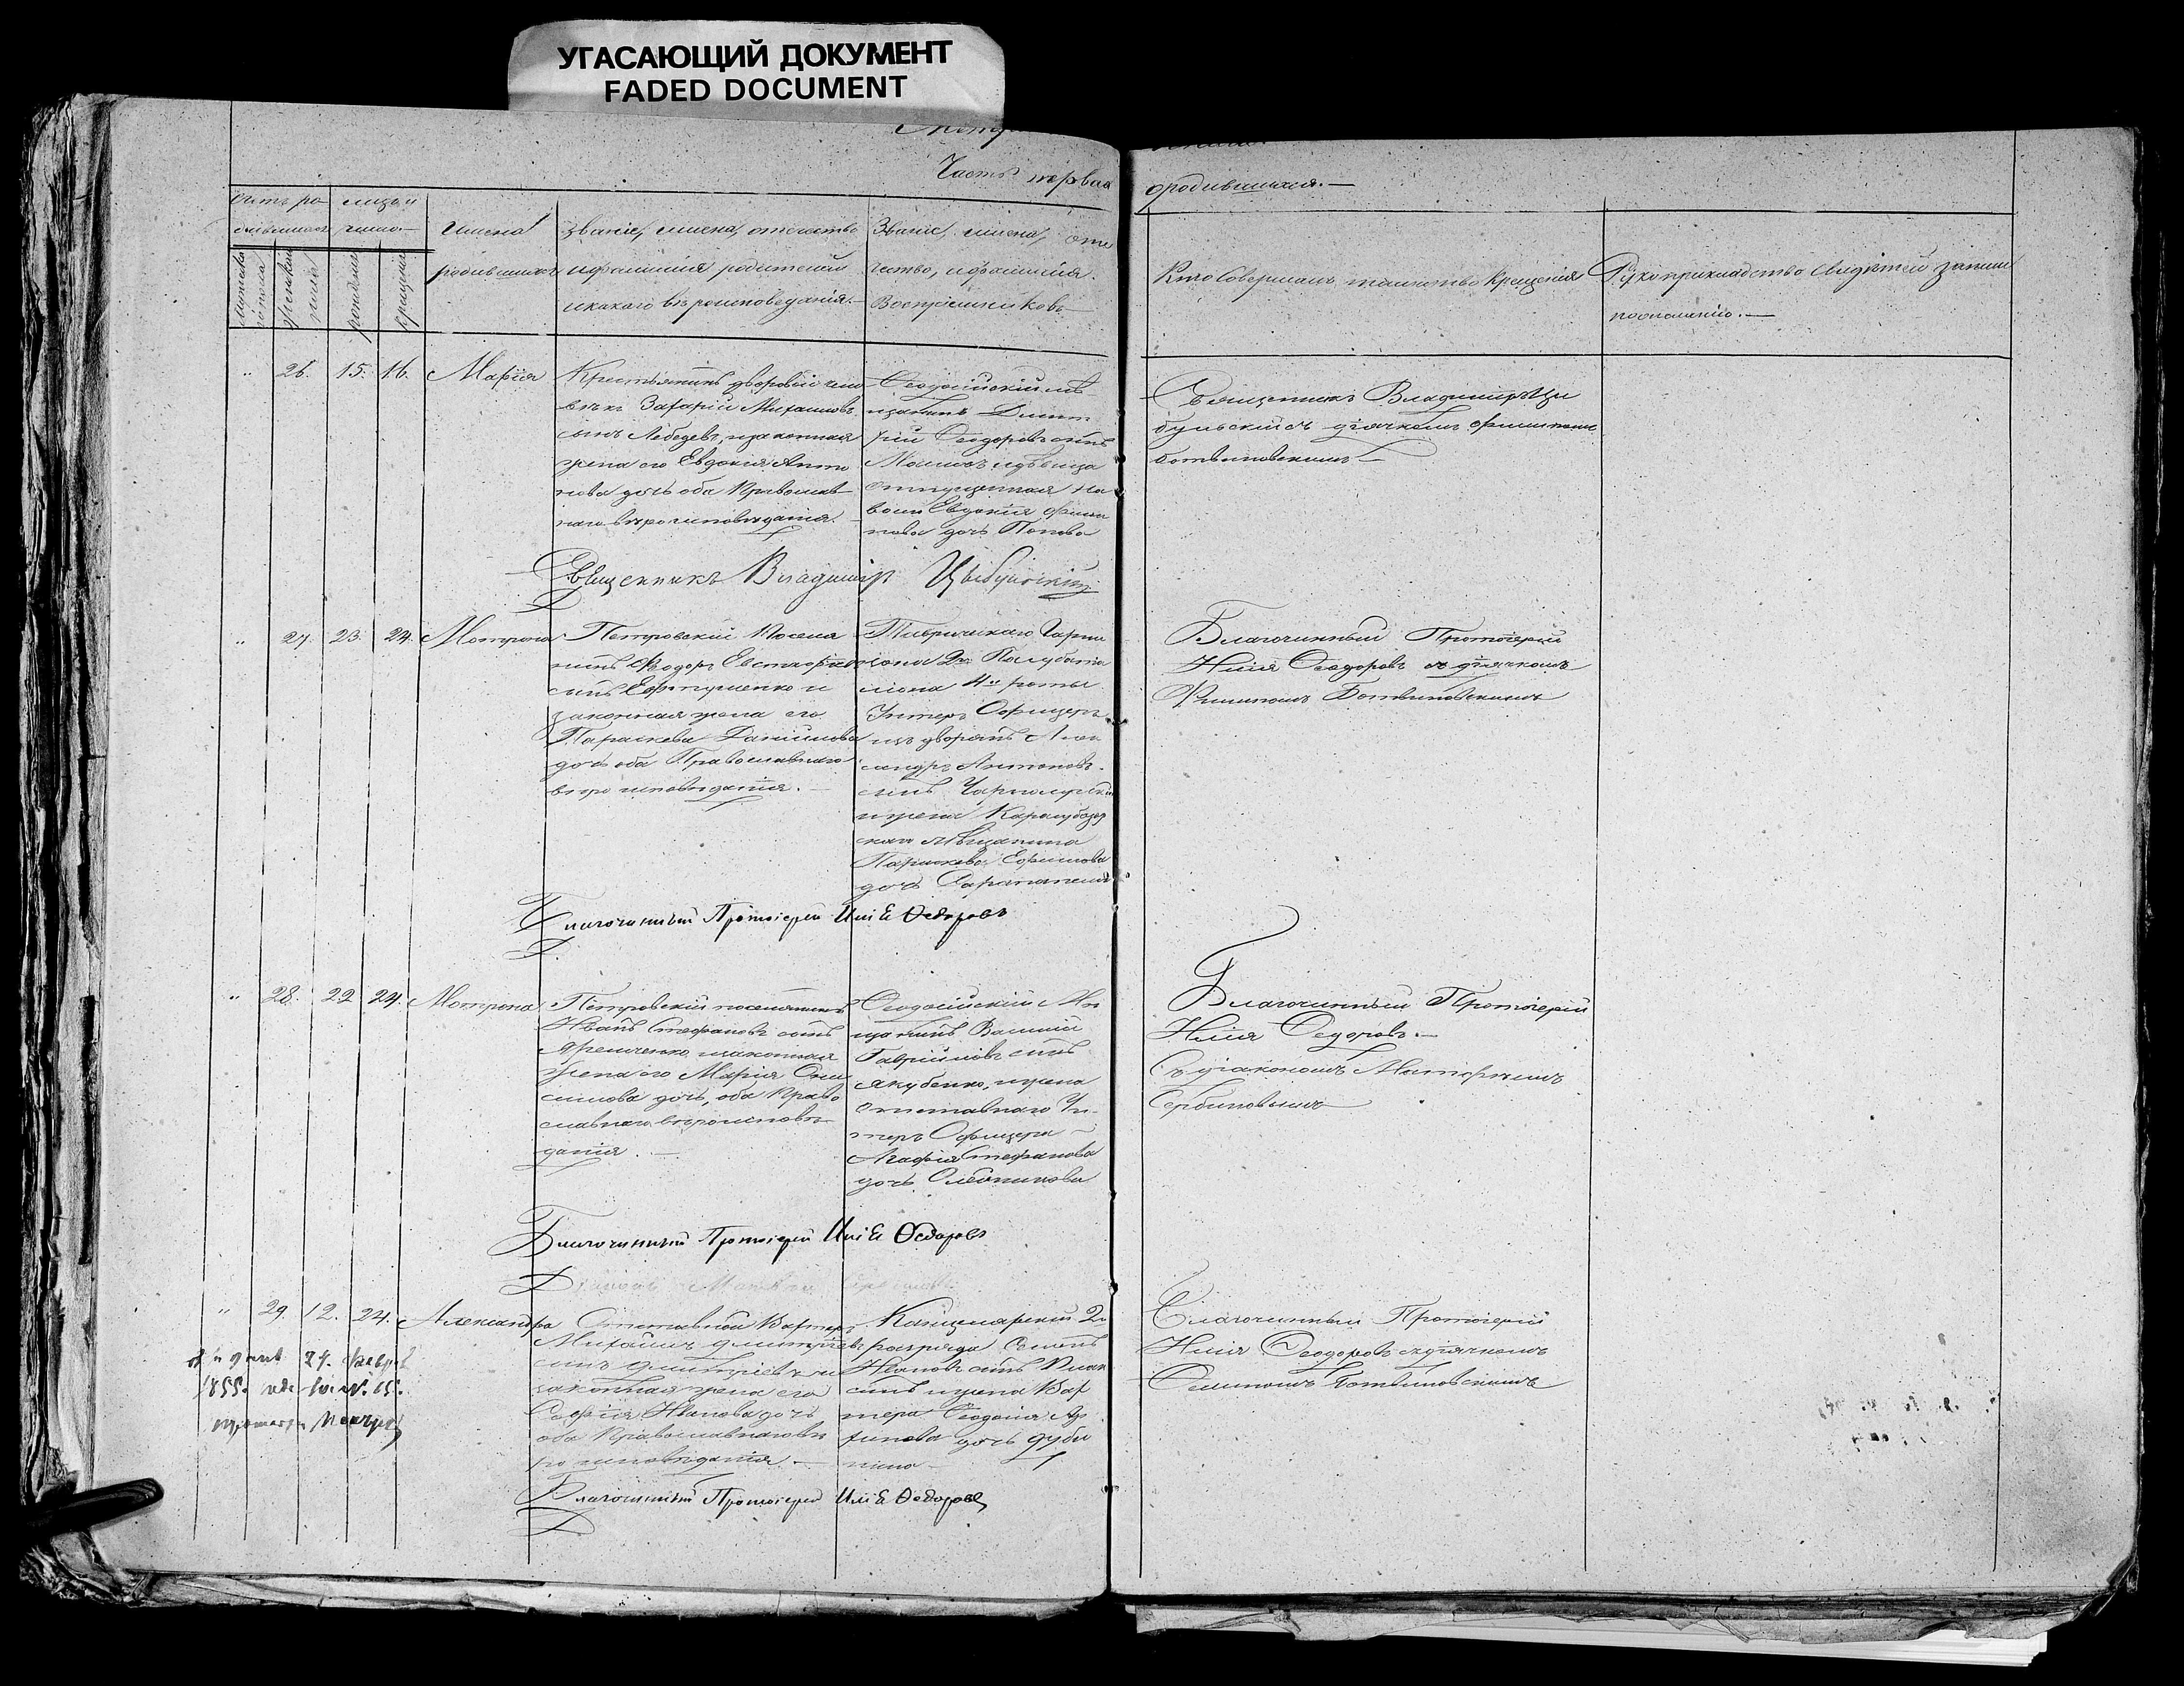 УГАСАЮЩИЙ ДОКУМЕНТ
FADED DOCUMENT
Часть первая
о родившихся.—
Счетъ ро-
дившихся
мѣсяцъ и
число.—
мужеска
пола
женска
пола
рожденія
крещенія
Имена
родившихся
Званіе, имена, отчество
и фамилія родителей
и какого вѣроисповеданія.—
Званіе, имена, оте
чество, и фамилія.
Воспріемниковъ—
Кто Совершалъ таинство крещенія
Рукоприкладство Свидѣтелей записи
по желанію.—
" 26. 15. 16. Марія
Крестьянинъ дворовый чело
вѣкъ Захарій Михаиловъ
сынъ Лебедевъ, и законная
жена его Евдокія Анто
нова дочь оба Православ
наго вѣроисповѣданія.
Ѳеодосійскій мѣ
щанинъ Димит
рій Ѳеодоровъ сынъ
и дѣвица
отпущенная на
волю Евдокія Филип
пова дочь Попова
Священникъ Владиміръ Цы
бульскій съ дьячкомъ Филиппомъ
Ботвиновскимъ—
Священникъ Владиміръ Цыбульскій
" 27. 23. 24. Мотрона
Петровскій Поселя
нинъ Ѳеодоръ Евстафіевъ
сынъ Евтушенко и
законная жена его
Параскева Даніилова
дочь оба Православнаго
вѣроисповѣданія.—
Таврическаго Гарни
зона 2го Полубата
ліона 4й роты
Унтеръ Офицеръ
изъ дворянъ Алек
сандръ Антоновъ
сынъ
и жена Карасубазар
скаго Мѣщанина
Параскева Ефимова
дочь
Благочинный Протоіерей
Илія Ѳеодоровъ съ дьячкомъ
Филиппомъ Ботвиновскимъ
Благочинный Протоіерей Илія Ѳедоровъ
" 28. 22 24. Мотрона
Петровскій поселянинъ
Иванъ Стефановъ сынъ
Яременко, и законная
жена его Марія Они
симова дочь, оба Право
славнаго вѣроисповѣ
данія.—
Ѳеодосійскій Мѣ
щанинъ Василій
Гавріиловъ сынъ
Якубенко, и жена
отставнаго Ун-
теръ Офицера—
Агафія Стефанова
дочь
Благочинный Протоіерей
Илія Ѳедоровъ.—
Съ діакономъ Матѳеемъ
Сербиновымъ
Благочинный Протоіерей Илія Ѳедоровъ
" 29. 12. 24. Александра
Отставной Вахтеръ
Михаилъ Димитріевъ
сынъ Димитріевъ и
законная жена его
Софія Иванова дочь
оба Православнаго вѣ
роисповѣданія.—
Канцелярскій 2го
разряда
Ивановъ сынъ
и жена Вах
тера Ѳеодосія
дочь
Благочинный Протоіерей
Илія Ѳеодоровъ съ дьячкомъ
Филиппомъ Ботвиновскимъ
24. февр
1855.
Благочинный Протоіерей Илія Ѳедоровъ